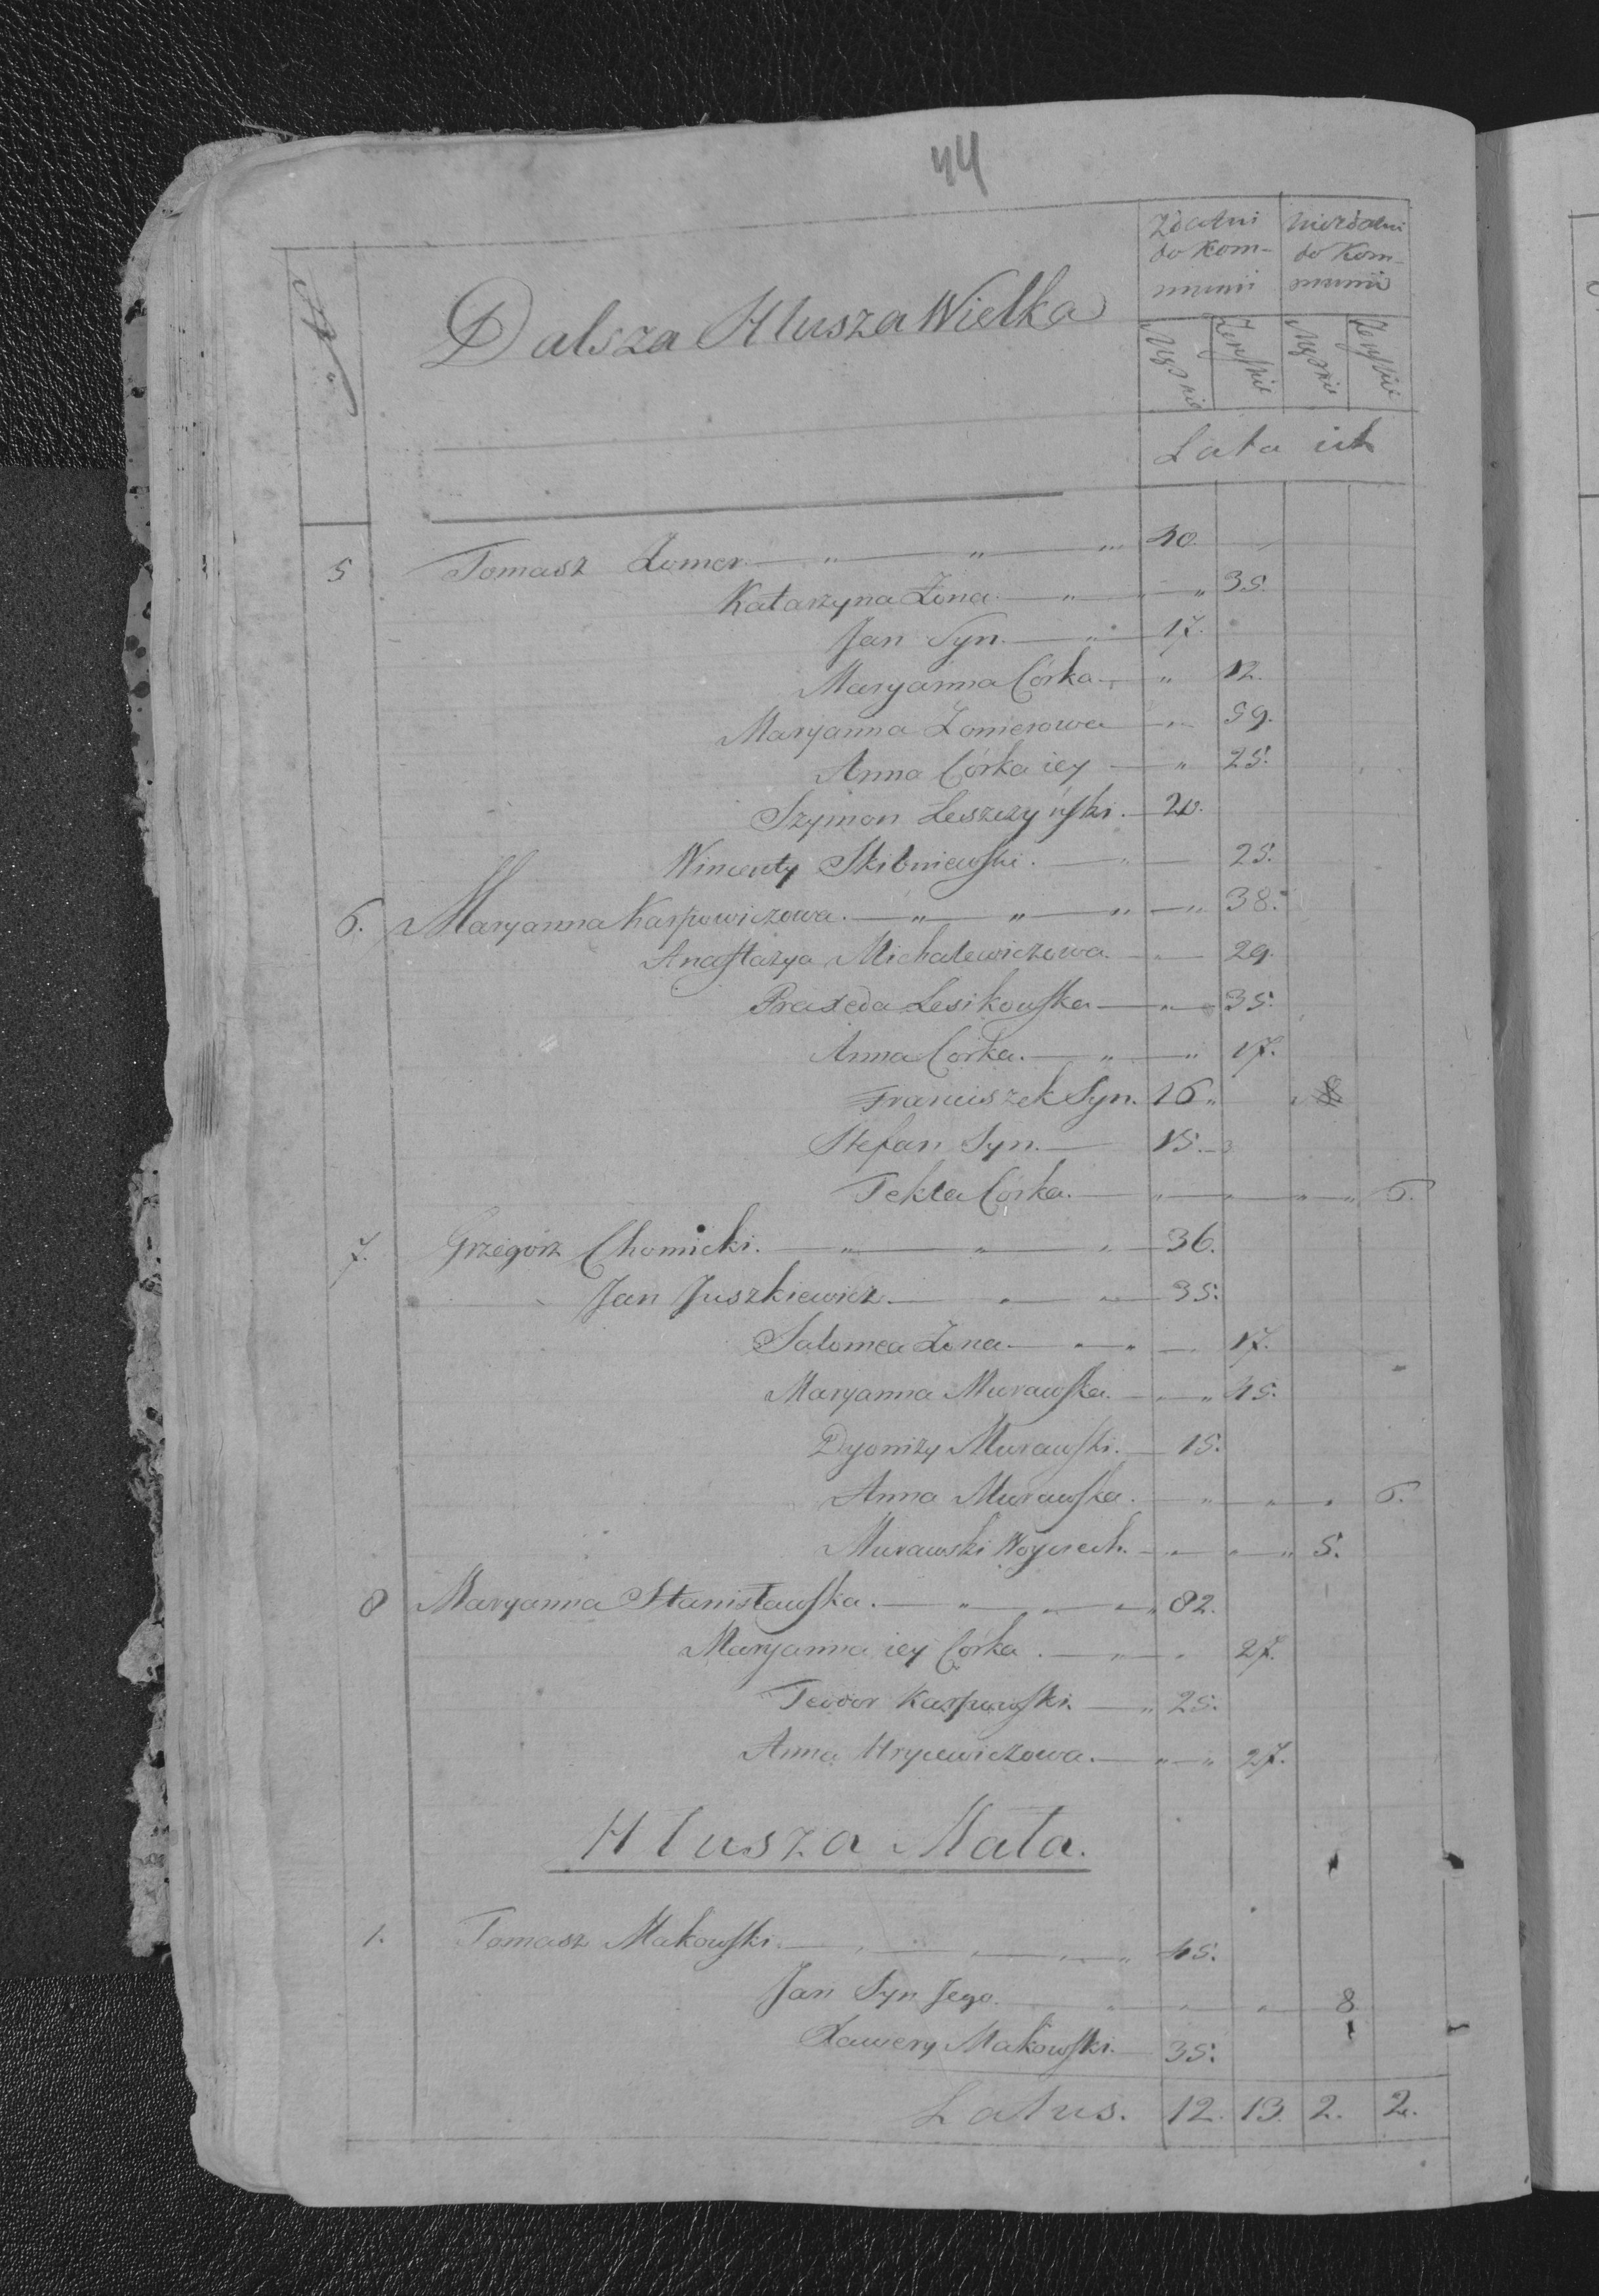 44
№ Dalsza Hlusza Wielka
Zdatni do Kom- munii
niezdatni do Kom- munii
Męzkie Żeńskie Męzkie Żeńskie
Lata ich
5 Tomasz Łomer. — " — " — " 40.
Katarzyna Żona. — " — " 35.
Jan Syn. — " — 17.
Maryanna Córka — " 12.
Maryanna Łomerowa — " — 59.
Anna Córka iey — " 25.
Szymon Leszczyński. — 20.
Wincenty Skibniewski. — " — 25.
6. Maryanna Karpowiczowa. — " — " — " — " 38.
Anastazya Michalewiczowa. — " — 29.
Praxeda Lesikowska — " — 35.
Anna Corka. — " — " 17.
Franciszek Syn. 16 "
Stefan Syn. — 15. —
Tekla Córka. — " — " — " — " 6.
7. Grzegorz Chomicki. — " — " — " — 36.
Jan Juszkiewicz. — " — " — 35.
Salomea Żona — " — " — 17.
Maryanna Murawska. — " — " 45.
Dyonizy Murawski. — 15.
Anna Murawska. — " — " — " 6.
Murawski Woyciech. — " — " — " 5.
8 Maryanna Stanisławska. — " — " — " 82.
Maryanna iey Córka. — " — " 27.
Teodor Karpowski. — " 25.
Anna Hrycewiczowa. — " — " 27.
Hlusza Mała.
1. Tomasz Makowski. — " — " — " 45.
Jan Syn Jego. " — " — " — 8
Xawery Makowski. — 35.
Latus. 12. 13. 2. 2.